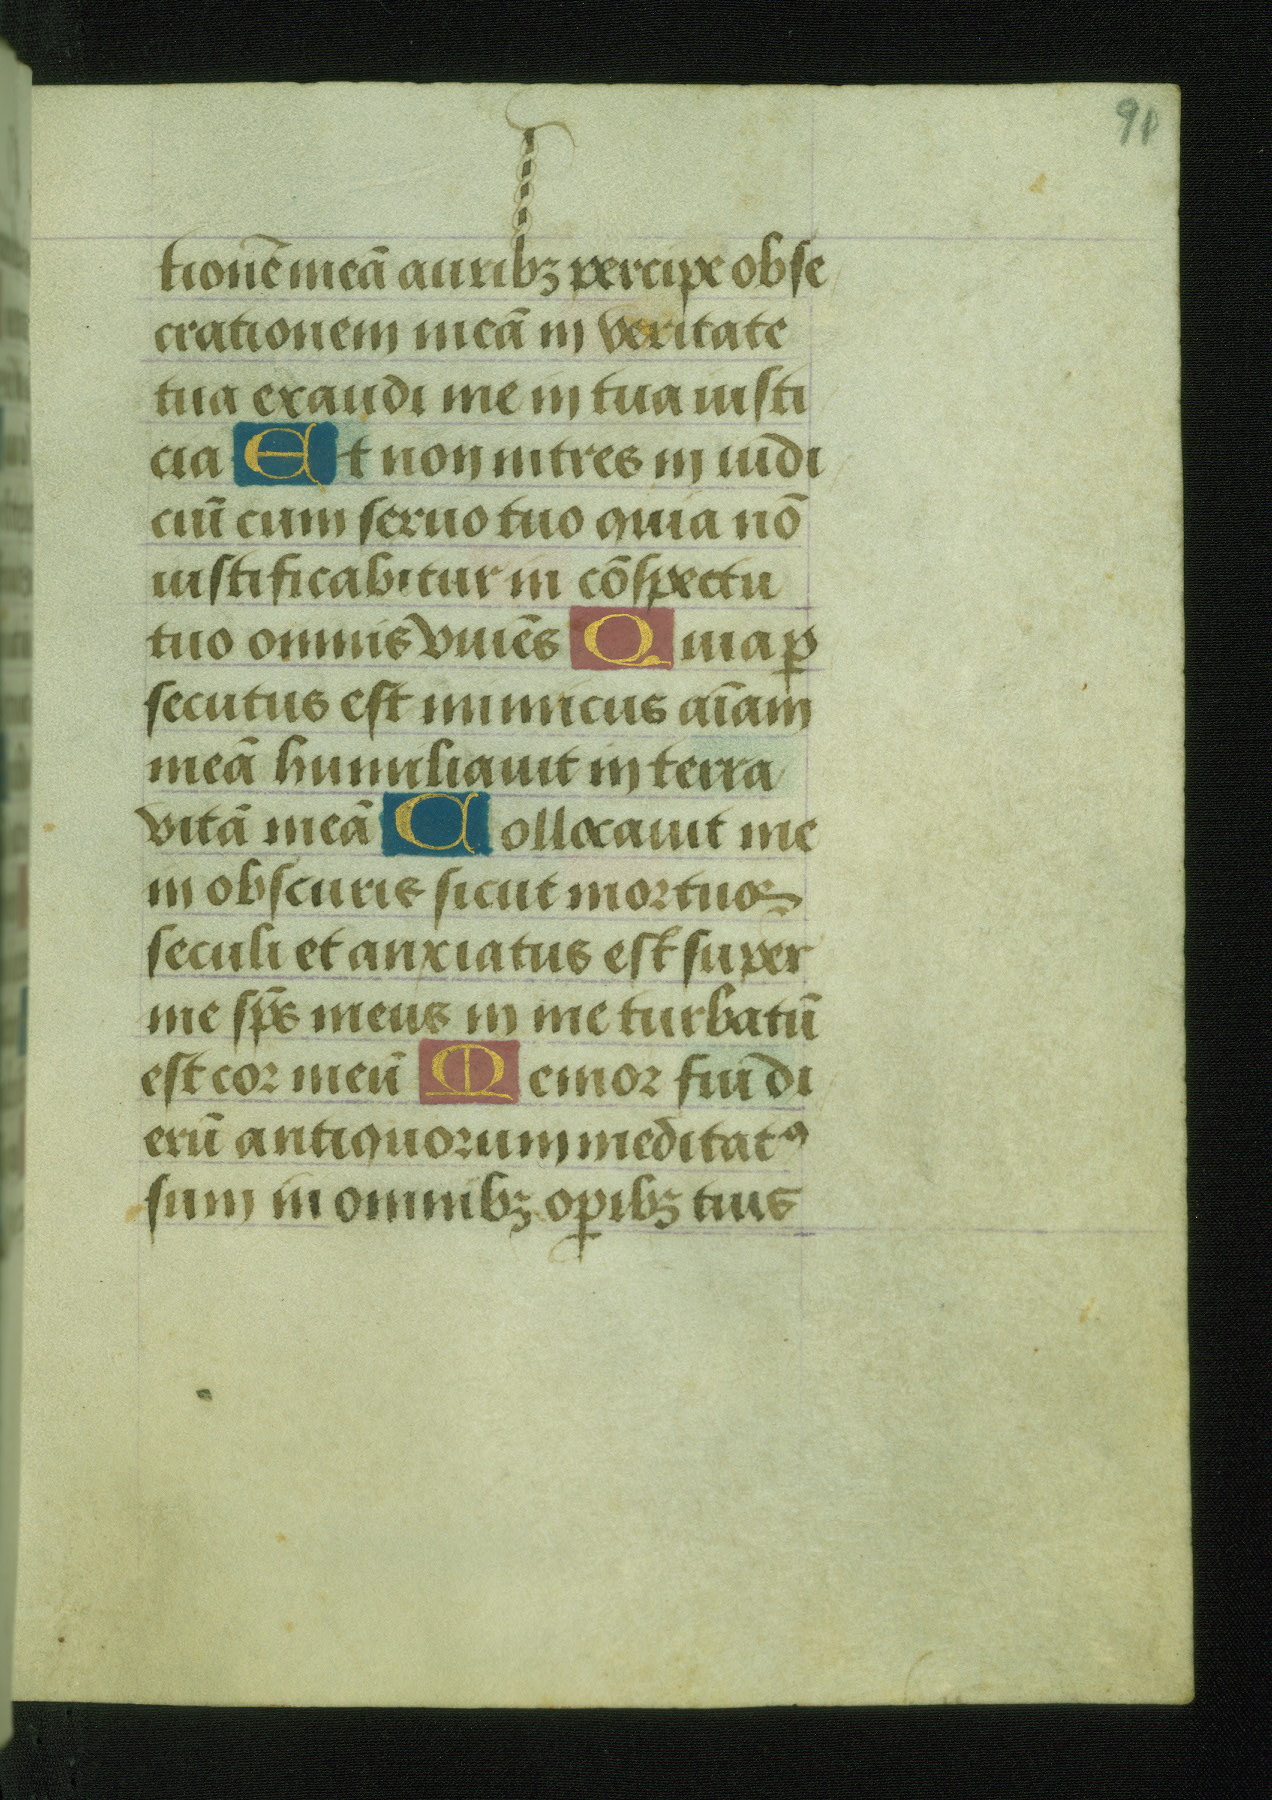 91
tionē meā auribꝫ percipe obse
crationem meā in veritate
tua exaudi me in tua iusti
cia Et non intres in iudi
ciū cum seruo tuo quia nō
iustificabitur in cōspectu
tuo omnis viuēs Quia ꝑ
secutus est inimicus aīam
meā humiliauit in terra
vitā meā Collocauit me
in obscuris sicut mortuoꝝ
seculi et anxiatus est super
me sp̄s meus in me turbatū
est cor meū Memor fui di
erū antiquorum meditatꝰ
sum in omnibꝫ oꝑibꝫ tuis